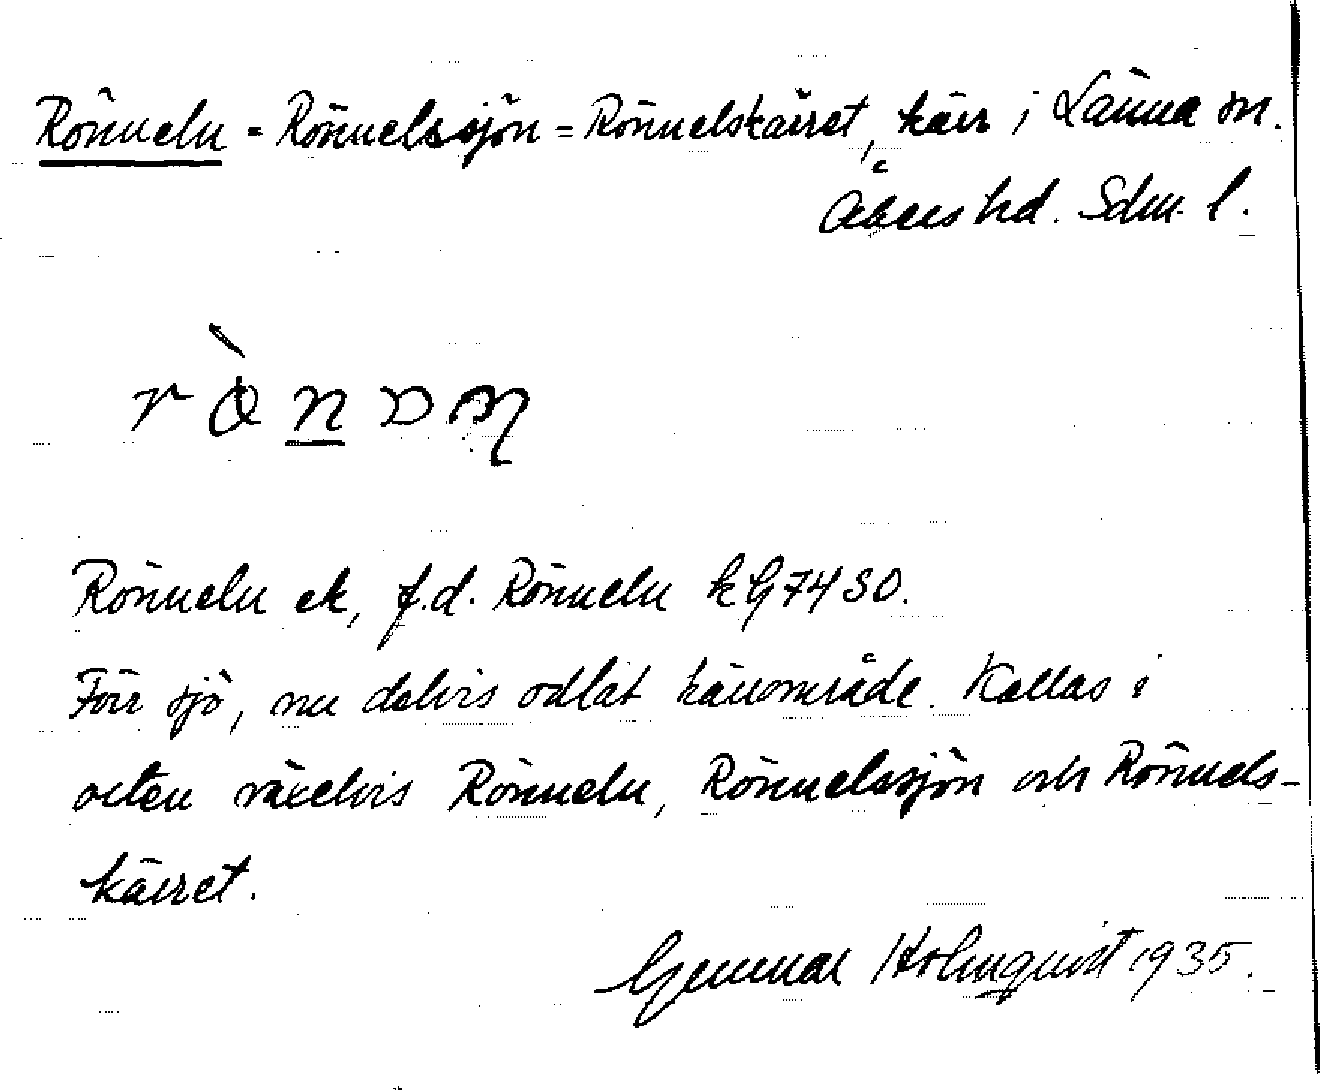 Rönneln = Rönnelssjön = Rönnelskärret, kärr i Länna sn.
Åkers hd. Sdm. l.
Rönneln ek, f.d. Rönneln k G74 SO.
Förr sjö, nu delvis odlat kärrområde. Kallas i
orten växelvis Rönneln, Rönnelssjön och Rönnels-
kärret.
Gunnar Holmquist 1935.